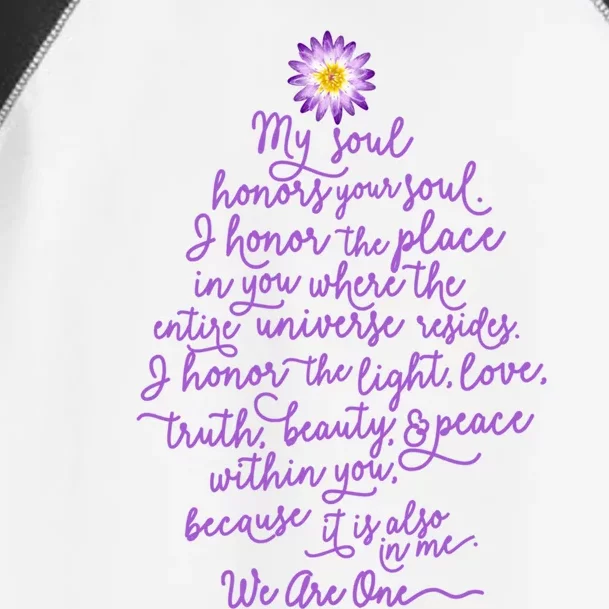 My soul
honors your soul.
I honor the place
in you where the
entire universe resides.
I honor the light, love,
truth, beauty, & peace
within you,
because it is also
in me.
We Are One